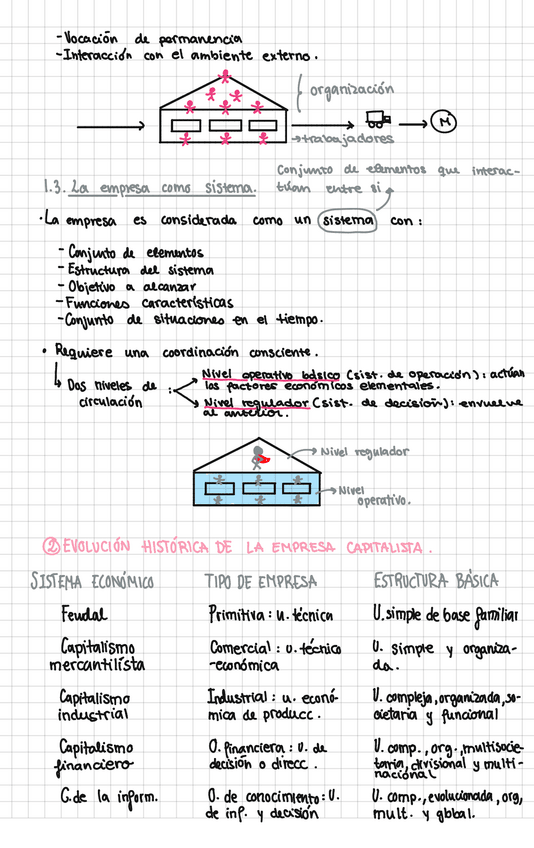 -Vocación de permanencia
-Interacción con el ambiente externo.
organización
M
→trabajadores
Conjunto de elementos que interac-
1.3. La empresa como sistema. túan entre si
·La empresa es considerada como un sistema con:
-Conjunto de elementos
-Estructura del sistema
-Objetivo a alcanzar
-Funciones características
-Conjunto de situaciones en el tiempo.
• Requiere una coordinación consciente.
Nivel operativo básico (sist. de operación): actúan
los factores económicos elementales.
Dos niveles de :
circulación
Nivel regulador (sist. de decisión): envuelve
al anterior.
→ Nivel regulador
→Nivel
operativo.
② EVOLUCIÓN HISTÓRICA DE LA EMPRESA CAPITALISTA.
SISTEMA ECONÓMICO TIPO DE EMPRESA ESTRUCTURA BÁSICA
Feudal Primitiva: u. técnica U. simple de base familiar
Capitalismo Comercial: u. técnico U. simple y organiza-
mercantilista -económica da.
Capitalismo Industrial: u. econó- U. compleja, organizada, so-
industrial mica de producc. cietaria y funcional
Capitalismo O. financiera: U. de U. comp., org., multisocie-
financiero decisión o direcc. taria, divisional y multi-
nacional
C. de la inform. O. de conocimiento: U. U. comp., evolucionada, org,
de inf. y decisión mult. y global.